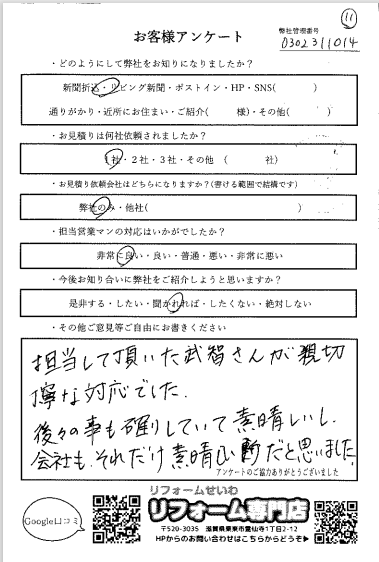 ⑪
お客様アンケート
弊社管理番号
0302311014
・どのようにして弊社をお知りになりましたか?
新聞折込・リビング新聞・ポストイン・HP・SNS( )
通りがかり・近所にお住まい・ご紹介( 様)・その他( )
・お見積りは何社依頼されましたか?
1社・2社・3社・その他 ( 社)
・お見積り依頼会社はどちらになりますか?(書ける範囲で結構です)
弊社のみ・他社( )
・担当営業マンの対応はいかがでしたか?
非常に良い・良い・普通・悪い・非常に悪い
・今後お知り合いに弊社をご紹介しようと思いますか?
是非する・したい・聞かれれば・したくない・絶対しない
・その他ご意見等ご自由にお書きください
担当して頂いた武智さんが親切
寧な対応でした.
後々の事も確りしていて素晴しいし.
会社も.それだけ素晴しいだと思いました
アンケートのご協力ありがとうございました
Google口コミ
リフォームせいわ
リフォーム専門店
〒520-3035 滋賀県栗東市霊仙寺1丁目2-12
HPからのお問い合わせはこちらからどうぞ▶